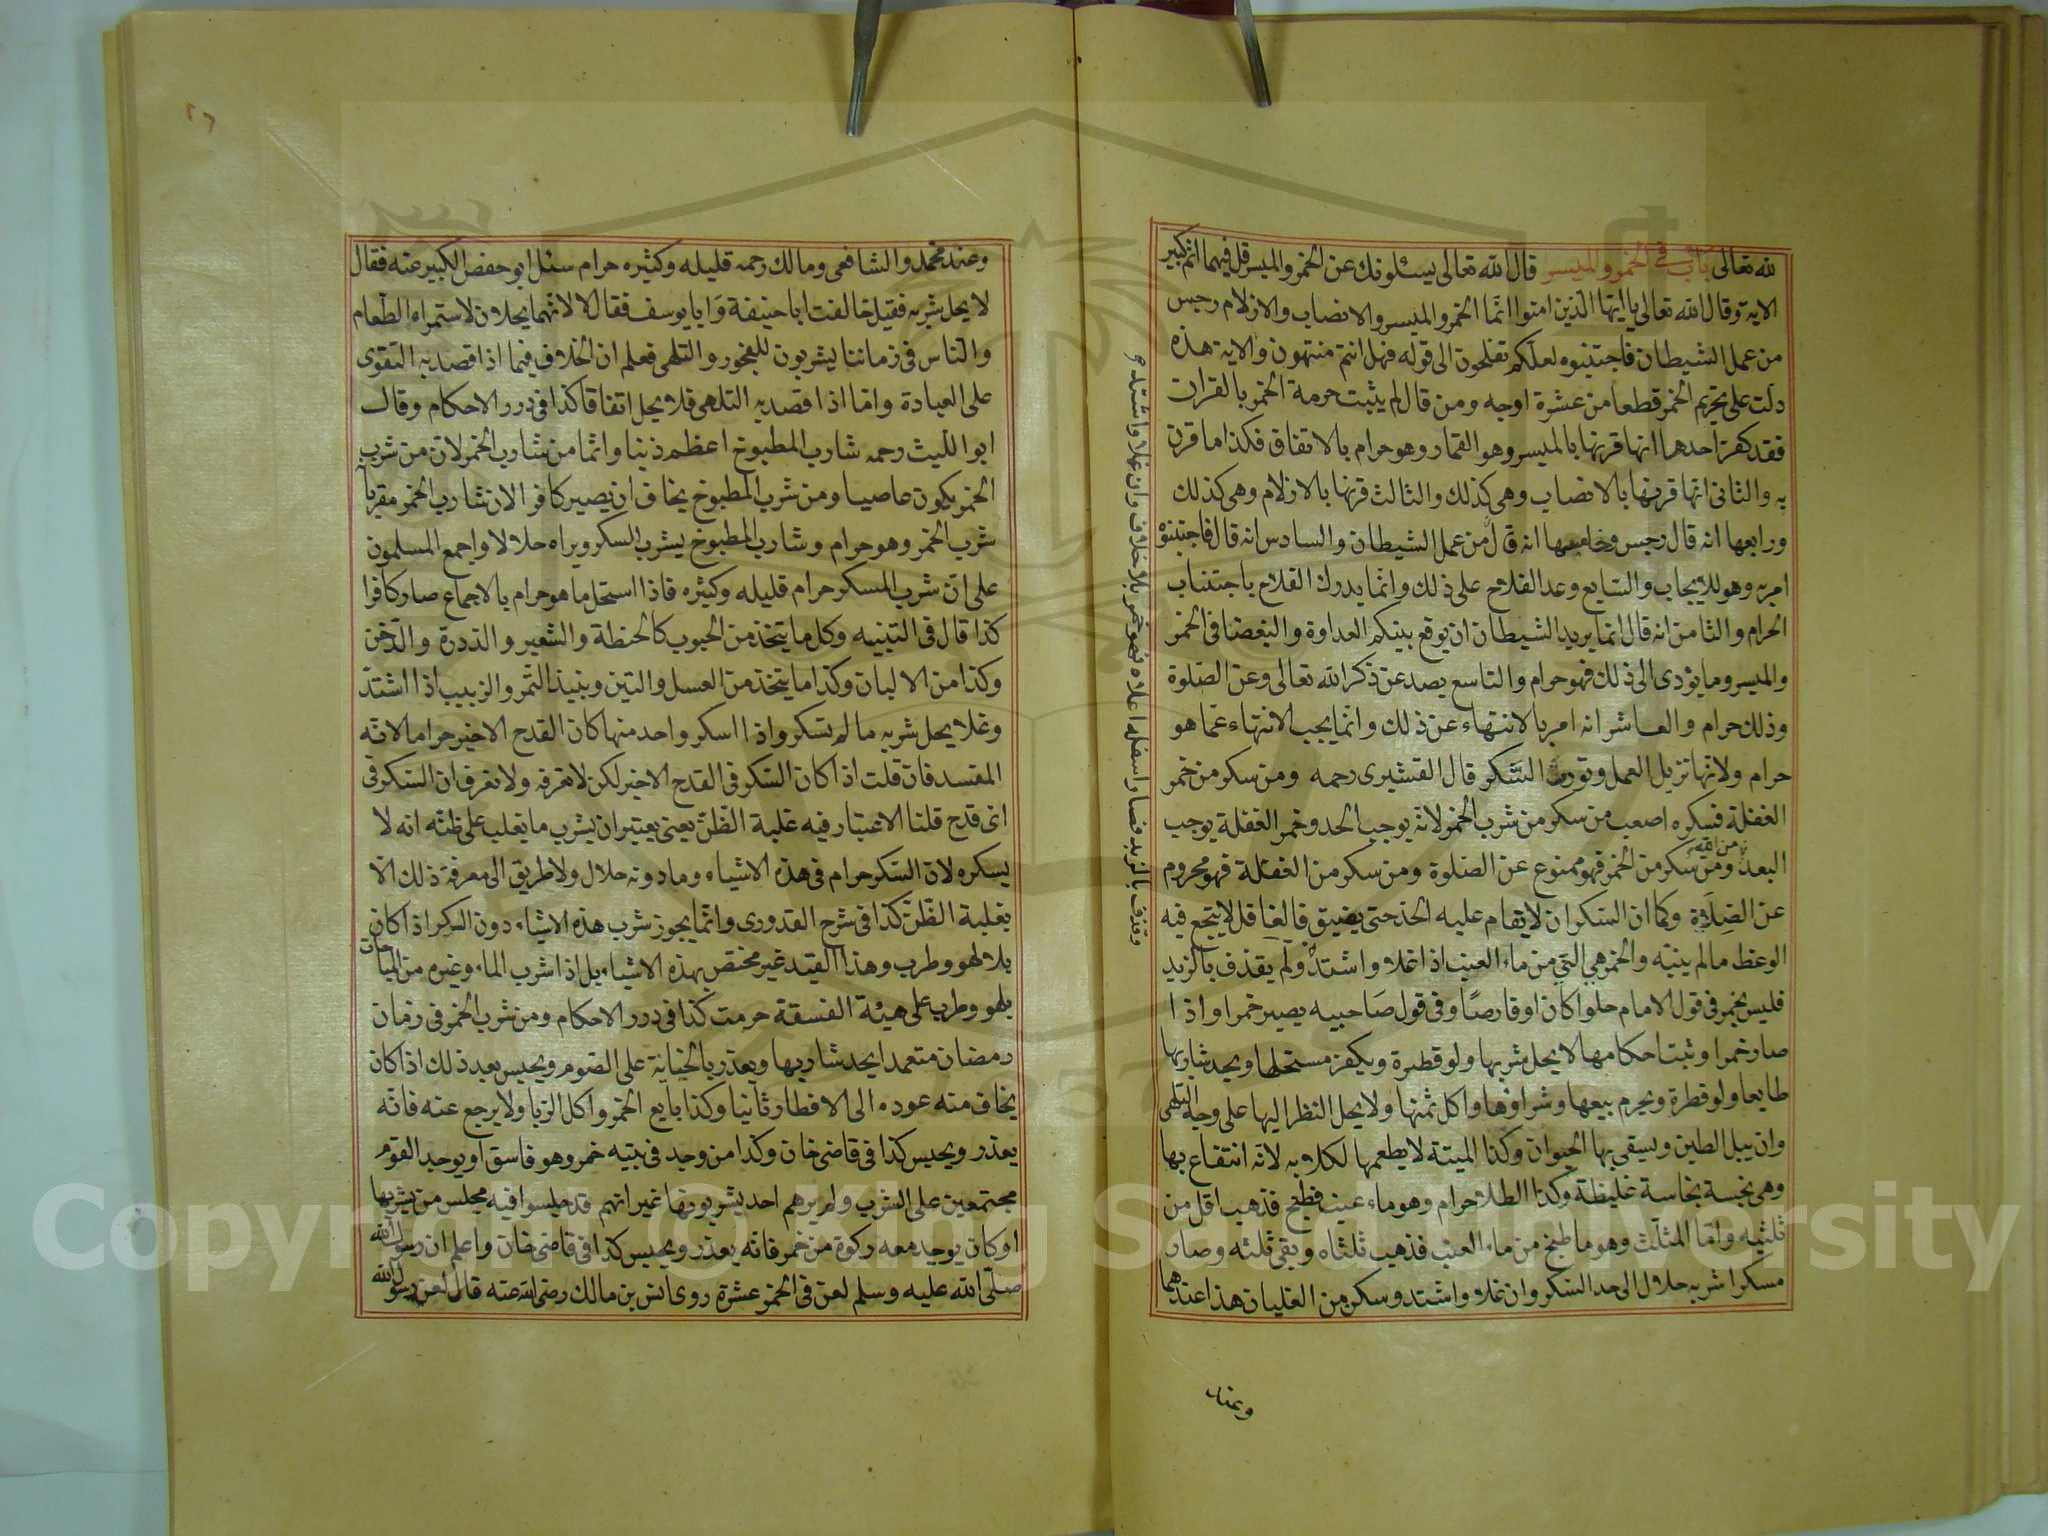 لله تعالى باب في الخمر والميسر قال الله تعالى يسئلونك عن الخمر والميسر قل فيهما اثم كبير
الاية وقال الله تعالى يا ايها الذين امنوا انما الخمر والميسر والانصاب والازلام رجس
من عمل الشيطان فاجتنبوه لعلكم تفلحون الى قوله فهل انتم منتهون والاية هذه
دلت على تحريم الخمر قطعا من عشرة اوجه ومن قال لم يثبت حرمة الخمر بالقران
فقد كفر احدها انها قرنها بالميسر وهو القمار وهو حرام بالاتفاق فكذا ما قرن
به والثانى انها قرنها بالانصاب وهى كذلك والثالث قرنها بالازلام وهى كذلك
ورابعها انه قال رجس وخامسها انه قال من عمل الشيطان والسادس انه قال فاجتنبوه
امر به وهو للايجاب والسابع وعد الفلاح على ذلك وانما يدرك الفلاح باجتناب
الحرام والثامن انه قال انما يريد الشيطان ان يوقع بينكم العداوة والبغضا فى الخمر
والميسر وما يؤدى الى ذلك فهو حرام والتاسع يصد عن ذكر الله تعالى وعن الصلوة
وذلك حرام والعاشر انه امر بالانتهاء عن ذلك وانما يجب الانتهاء عما هو
حرام ولانها تزيل العمل وتورث السكر قال القشيرى رحمه ومن سكر من خمر
الغفلة فسكره اصعب من سكر من شرب الخمر لانه يوجب الحد وخمر الغفلة يوجب
البعد من الله ومن سكر من الخمر فهو ممنوع عن الصلوة ومن سكر من الغفلة فهو محروم
عن الصلاة وكما ان السكران لا يقام عليه الحد حتى يضيق فالغافل لا ينجع فيه
الوعظ مالم ينبه والخمر هي التي من ماء العنب اذا غلا واشتد ولم يقذف بالزبد
فليس بخمر فى قول الامام حلوا كان او قارصا وفى قول صاحبيه يصير خمرا واذا
صار خمرا وثبت احكامها لا يحل شربها ولو قطرة ويكفر مستحلها ويحد شاربها
طايعا ولو قطرة ويحرم بيعها وشراؤها واكل ثمنها ولا يحل النظر اليها على وجه التلهى
وان يبل الطين ويسقى بها الحيوان وكذا الميتة لا يطعمها لكلابه لانه انتفاع بها
وهى نجسة نجاسة غليظة وكذا الطلا حرام وهو ماء عنب فطبخ فذهب اقل من
ثلثيه واما المثلث وهو ما طبخ من ماء العنب فذهب ثلثاه وبقى ثلثه وصار
مسكرا شربه حلال الى حد السكر وان غلا واشتد وسكن من الغليان هذا عندهما
وقذف بالزبد فصار اسفله اعلاه فهو خمر بلا خلاف وان غلا واشتد
وعند
٢٦
وعند محمد والشافعى ومالك رحمه قليله وكثيره حرام سئل ابو حفص الكبير عنه فقال
لا يحل شربه فقيل خالفت ابا حنيفة وابا يوسف فقال لا لانهما يحلان لاستمراء الطعام
والناس فى زماننا يشربون للفجور والتلهى فعلم ان الخلاف فيما اذا قصد به التقوى
على العبادة واما اذا قصد به التلهى فلا يحل اتفاقا كذا فى درر الاحكام وقال
ابو الليث رحمه شارب المطبوخ اعظم ذنبا واثما من شارب الخمر لان من شرب
الخمر يكون عاصيا ومن شرب المطبوخ يخاف ان يصير كافرا لان شارب الخمر مقر بان
شرب الخمر وهو حرام وشارب المطبوخ يشرب السكر ويراه حلالا واجمع المسلمون
على ان شرب المسكر حرام قليله وكثيره فاذا استحل ما هو حرام بالاجماع صار كافرا
كذا قال فى التنبيه وكل ما يتخذ من الحبوب كالحنطة والشعير والذرة والدخن
وكذا من الالبان وكذا ما يتخذ من العسل والتين ونبيذ التمر والزبيب اذا اشتد
وغلا يحل شربه مالم تسكر واذا اسكر واحد منها كان القدح الاخير حراما لانه
المفسد فان قلت اذا كان السكر فى القدح الاخير لكن لا نعرفه ولا نعرف ان السكر فى
اى قدح قلنا الاعتبار فيه غلبة الظن يعنى يعتبر ان يشرب ما يغلب على ظنه انه لا
يسكره ولان السكر حرام فى هذه الاشياء وما دونه حلال ولا طريق الى معرفة ذلك الا
بغلبة الظن كذا فى شرح القدورى وانما يجوز شرب هذه الاشياء دون السكر اذا كان
بلا لهو وطرب وهذا القيد غير مختص بهذه الاشياء بل اذا شرب الماء وغيره من المباحات
بلهو وطرب على هيئة الفسقة حرمت كذا فى درر الاحكام ومن شرب الخمر فى زمان
رمضان متعمدا يحد شاربها ويعذر بالجناية على الصوم ويحبس بعد ذلك اذا كان
يخاف منه عوده الى الافطار ثانيا وكذا بايع الخمر واكل الربا ولا يرجع عنه فانه
يعذر ويحبس كذا فى قاضى خان وكذا من وجد فى بيته خمر وهو فاسق او يوجد القوم
مجتمعين على الشرب ولم يرهم احد يشربونها غير انهم قد جلسوا فيه مجلس من يشربها
او كان يوجد معه ركوة من خمر فانه يعذر ويحبس كذا فى قاضى خان واعلم ان رسول الله
صلى الله عليه وسلم لعن فى الخمر عشرة روى انس بن مالك رضى الله عنه قال لعن رسول الله
Copyright © King Saud University
1957